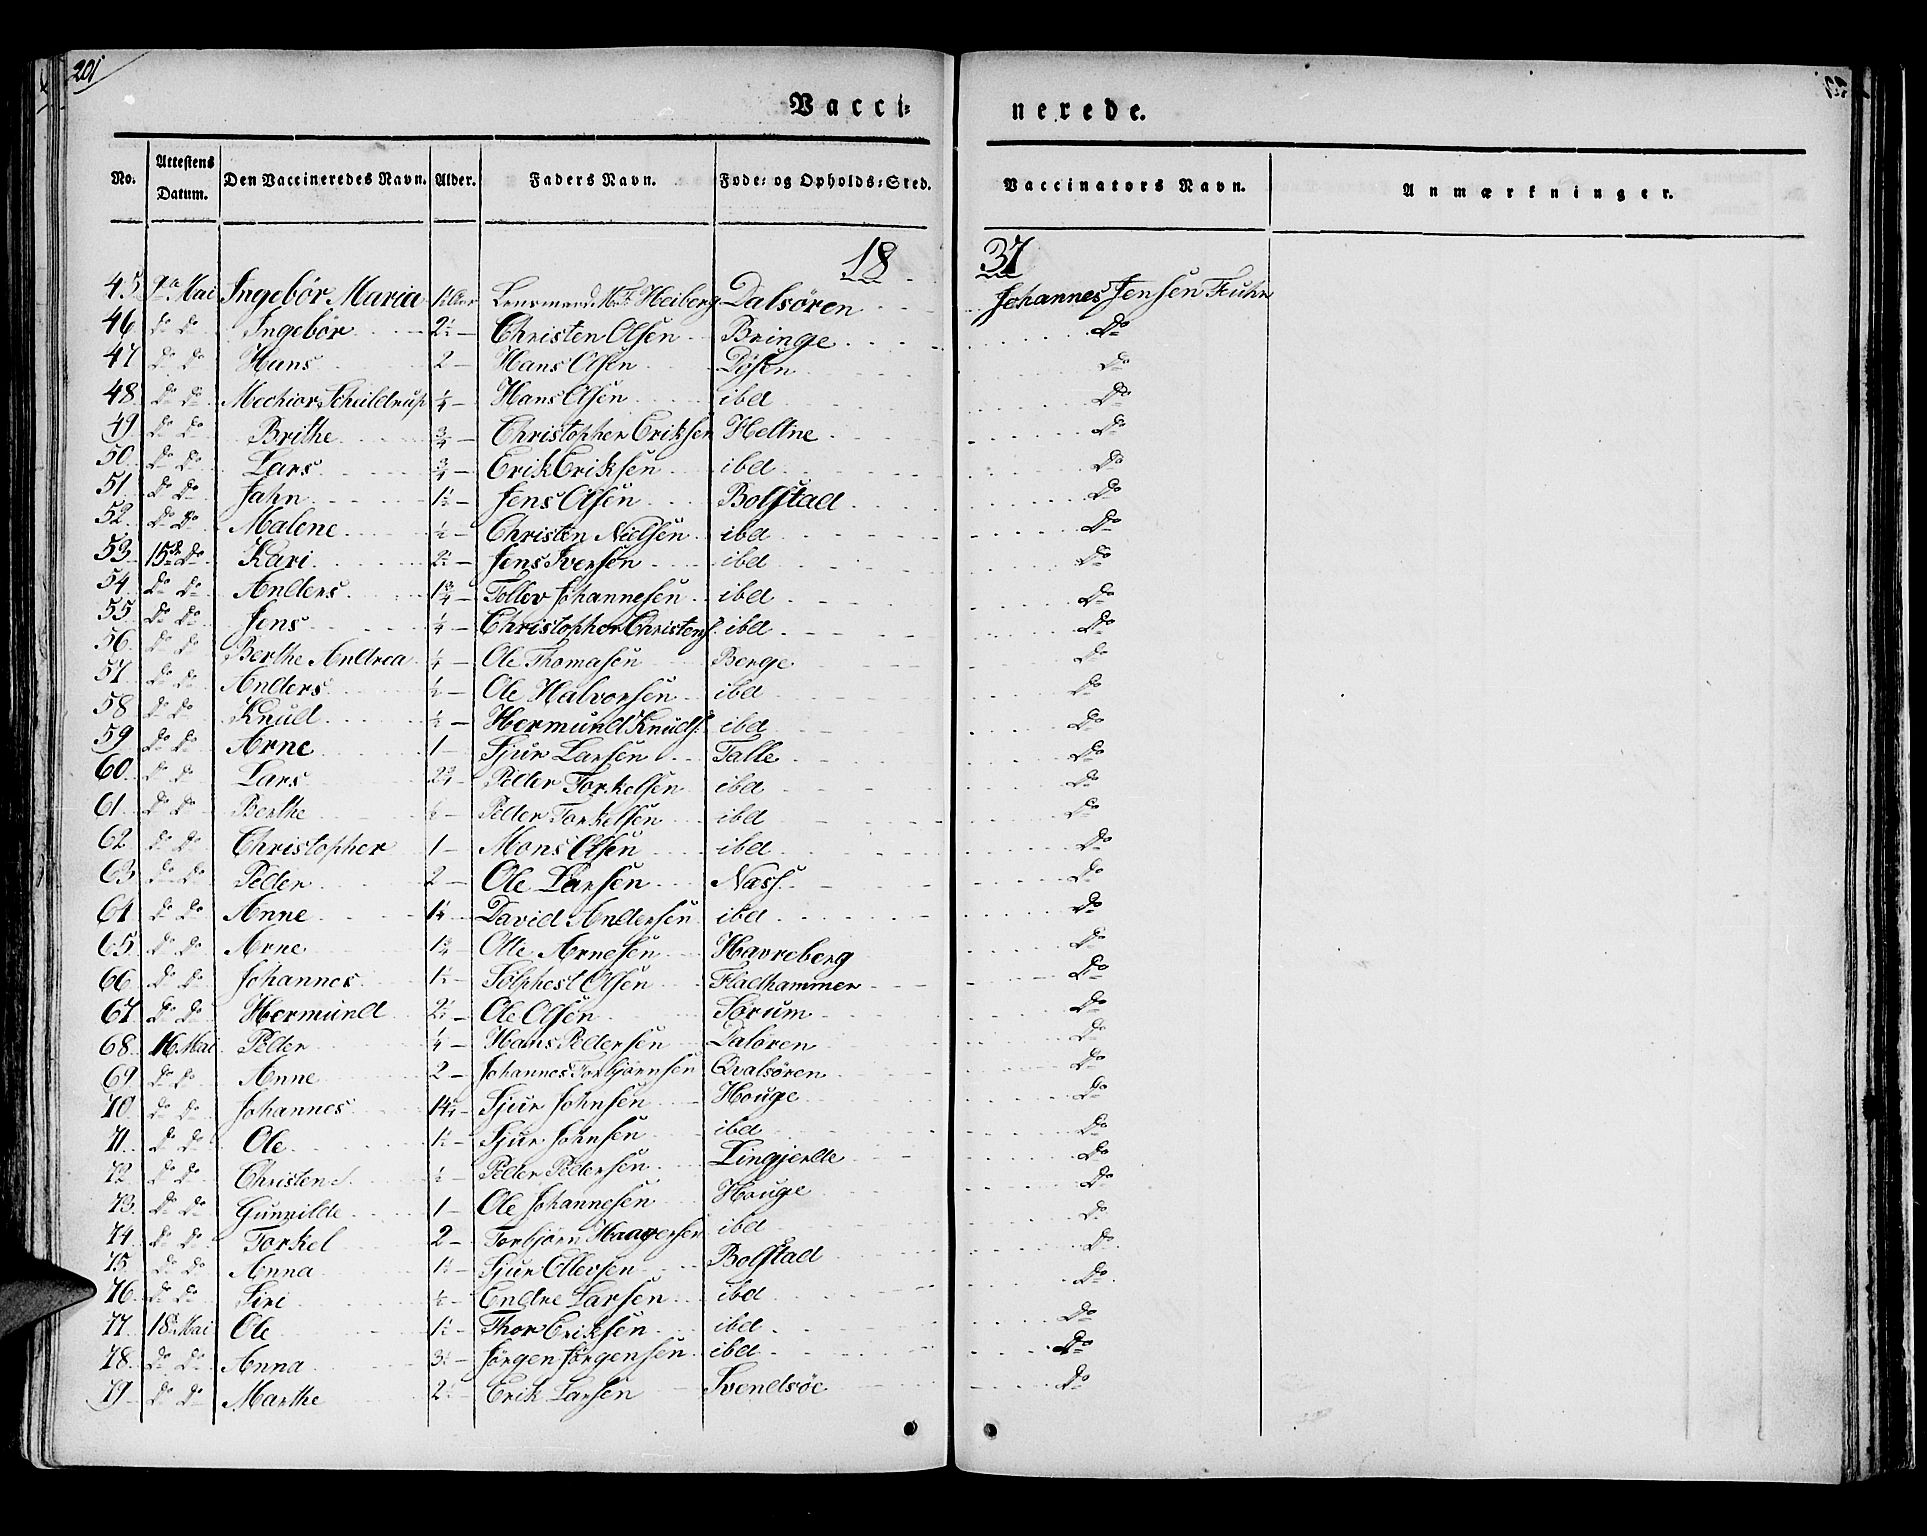 201
Vacci= nerede.
No. Attestens Datum. Den Vaccineredes Navn. Alder. Faders Navn. Føde= og Opholds=Sted. Vaccinators Navn. Anmærkninger.
18 37
45 Mai Ingebor Maria Lensmand Heiberg Dalsøren Johannes Jensen Fuhr
46 do do Ingebor 2½ Christen Olsen Bringe do
47 do do Hans 2 Hans Olsen Døsen do
48 do do Mechior Scheildrup ¼ Hans Olsen ibd do
49 do do Brithe ¾ Christopher Eriksen Heltne do
50 do do Lars ¾ Erik Eriksen ibd do
51 do do Jahn 1½ Jens Olsen Bolstad do
52 do do Malene ½ Christen Nielsen ibd do
53 15de do Kari Jens Iversen ibd do
54 do do Anders 1¾ Tollev Johannesen ibd do
55 do do Jens ¼ Christopher Christens. ibd do
56 do do Berthe Andrea ¼ Ole Thomasen Berge do
57 do do Anders ½ Ole Halvorsen ibd do
58 do do Knud ½ Hermund Knuds. ibd do
59 do do Arne 1 Sjur Larsen Talle do
60 do do Lars 2¾ Peder Torkelsen ibd do
61 do do Berthe Peder Torkelsen ibd do
62 do do Christopher 1 Mons Olsen ibd do
63 do do Peder 2 Ole Larsen Næss. do
64 do do Anne 1¼ David Andersen ibd do
65 do do Arne 1¾ Olle Arnesen Havreberg do
66 do do Johannes 1½ Sölphest Olsen Fladhammer do
67 do do Hermund 2½ Ole Olsen Sørum do
68 16 Mai Peder ¼ Hans Pedersen Daløren do
69 do do Anne 2 Johannes Torbjørnsen Qvalsøren do
70 do do Johannes Sjur Johnsen Houge do
71 do do Ole 1½ Sjur Johnsen ibd do
72 do do Christen ½ Peder Pedersen Lingjerde do
73 do do Gunnilde 1 Ole Johannesen Houge do
74 do do Torkel 2 Torbjørn Haagensen ibd do
75 do do Anna 1½ Sjur Ollevsen Bolstad do
76 do do Siri ½ Endre Larsen ibd do
77 18de Mai Ole 1½ Thor Eriksen ibd do
78 do do Anna 3½ Jørgen Jørgensen ibd do
79 do do Marthe Erik Larsen Svendsøe do